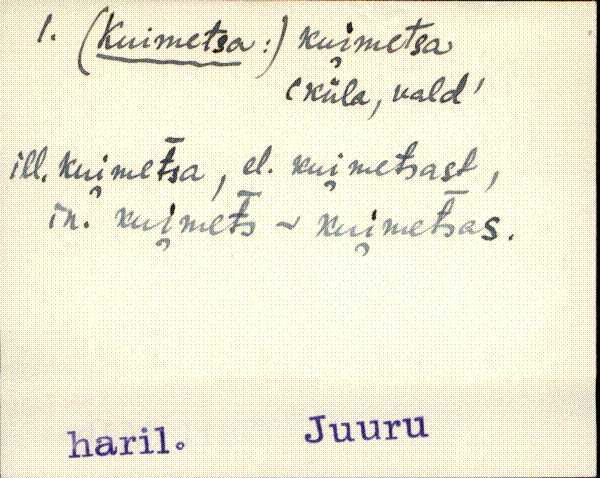 1. (Kuimetsa:) kui̯metsa
(küla, vald'
ill. kui̯met̄sa, el. kui̯metsast,
in. kui̯met̄s ~ kui̯met̄sas.
haril. Juuru